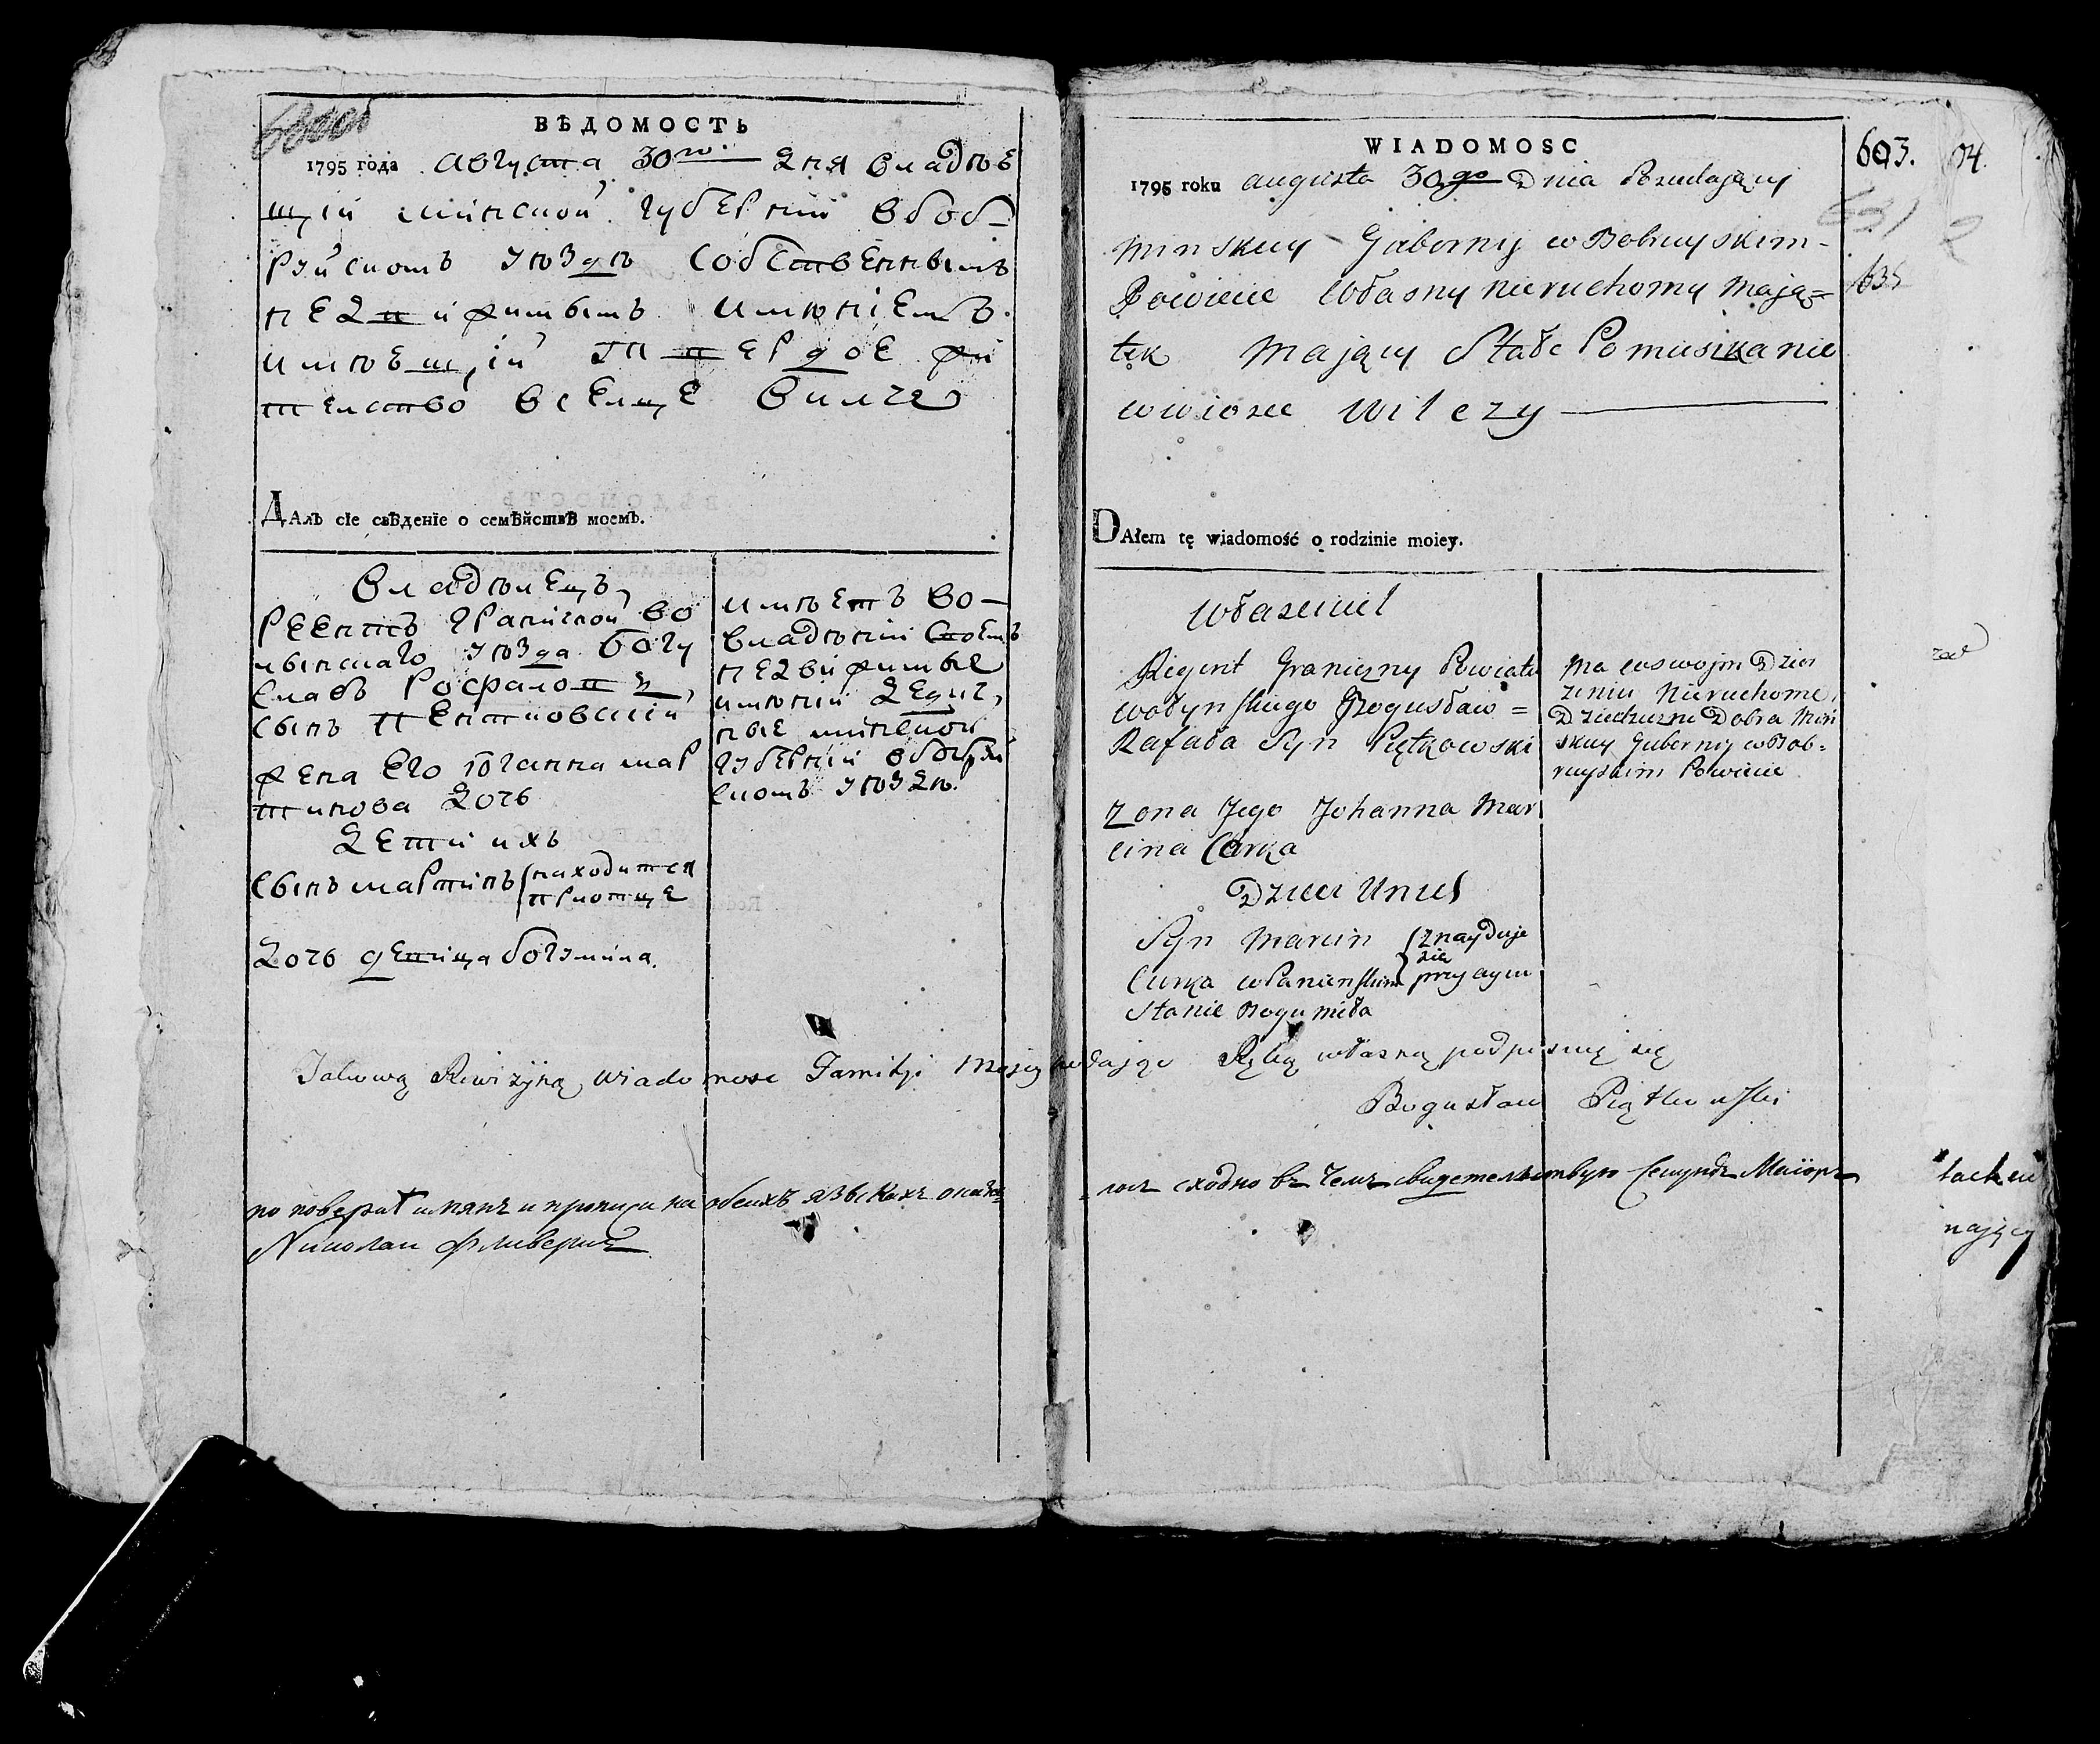 ВѢДОМОСТЬ
1795 года августа 30го дня владѣе
щій минской губерніи вбоб-
руйскомъ уѣздѣ собственнымъ
недвижимымъ имѣніемъ
имѣещій твердое жи
тельство вселце вилче
ДАлъ сїе свѣденїе о семѣйствѣ моемъ.
владѣлецъ
Реентъ граничной во
лынскаго уѣзда богу
славъ
сынъ пентковскій
жена его іоганна мар
тинова дочь
Дети ихъ
сынъ мартинъ находится
приотце
Дочь девица богумила
имѣетъ во-
владѣніи своемъ
недвижимые
имѣніи дедич,
ные минской
губерніи вбобруй
скомъ уѣздѣ.
WIADOMOSC
603.
631
635
1795 roku augusta 30go Dnia Posiadający
Minskiey Guberny w Bobruyskim-
Powiecie Własny nieruchomy Mają=
tek Mający Stałe Pomieszkanie
w wiosce Wilczy
DAłem tę wiadomość o rodzinie moiey.
Własciciel
Regent Graniczny Powiatu
Wołynskiego Bogusław =
Rafała Syn Piętkowski
Zona Jego Johanna Mar
cina Curka
Dzieci Unich
Syn Marcin znayduje
się
Curka w Panienskim przy oycu
Stanie Bogumiła
Ma w swojm Dzier
zeniu Nieruchome,
Dziedziczne Dobra Min
skiey Guberny w Bob-
ruyskim Powiecie
Takową Rewizyiną Wiadomosc Familyi Mojey podając Ręką własną podpisuię się
Bogusław Piątkowski
по поверки и на обеихъ языкахъ оказа=
лось сходно въ чемъ свидетельствую Секундъ Маіоръ
Николай